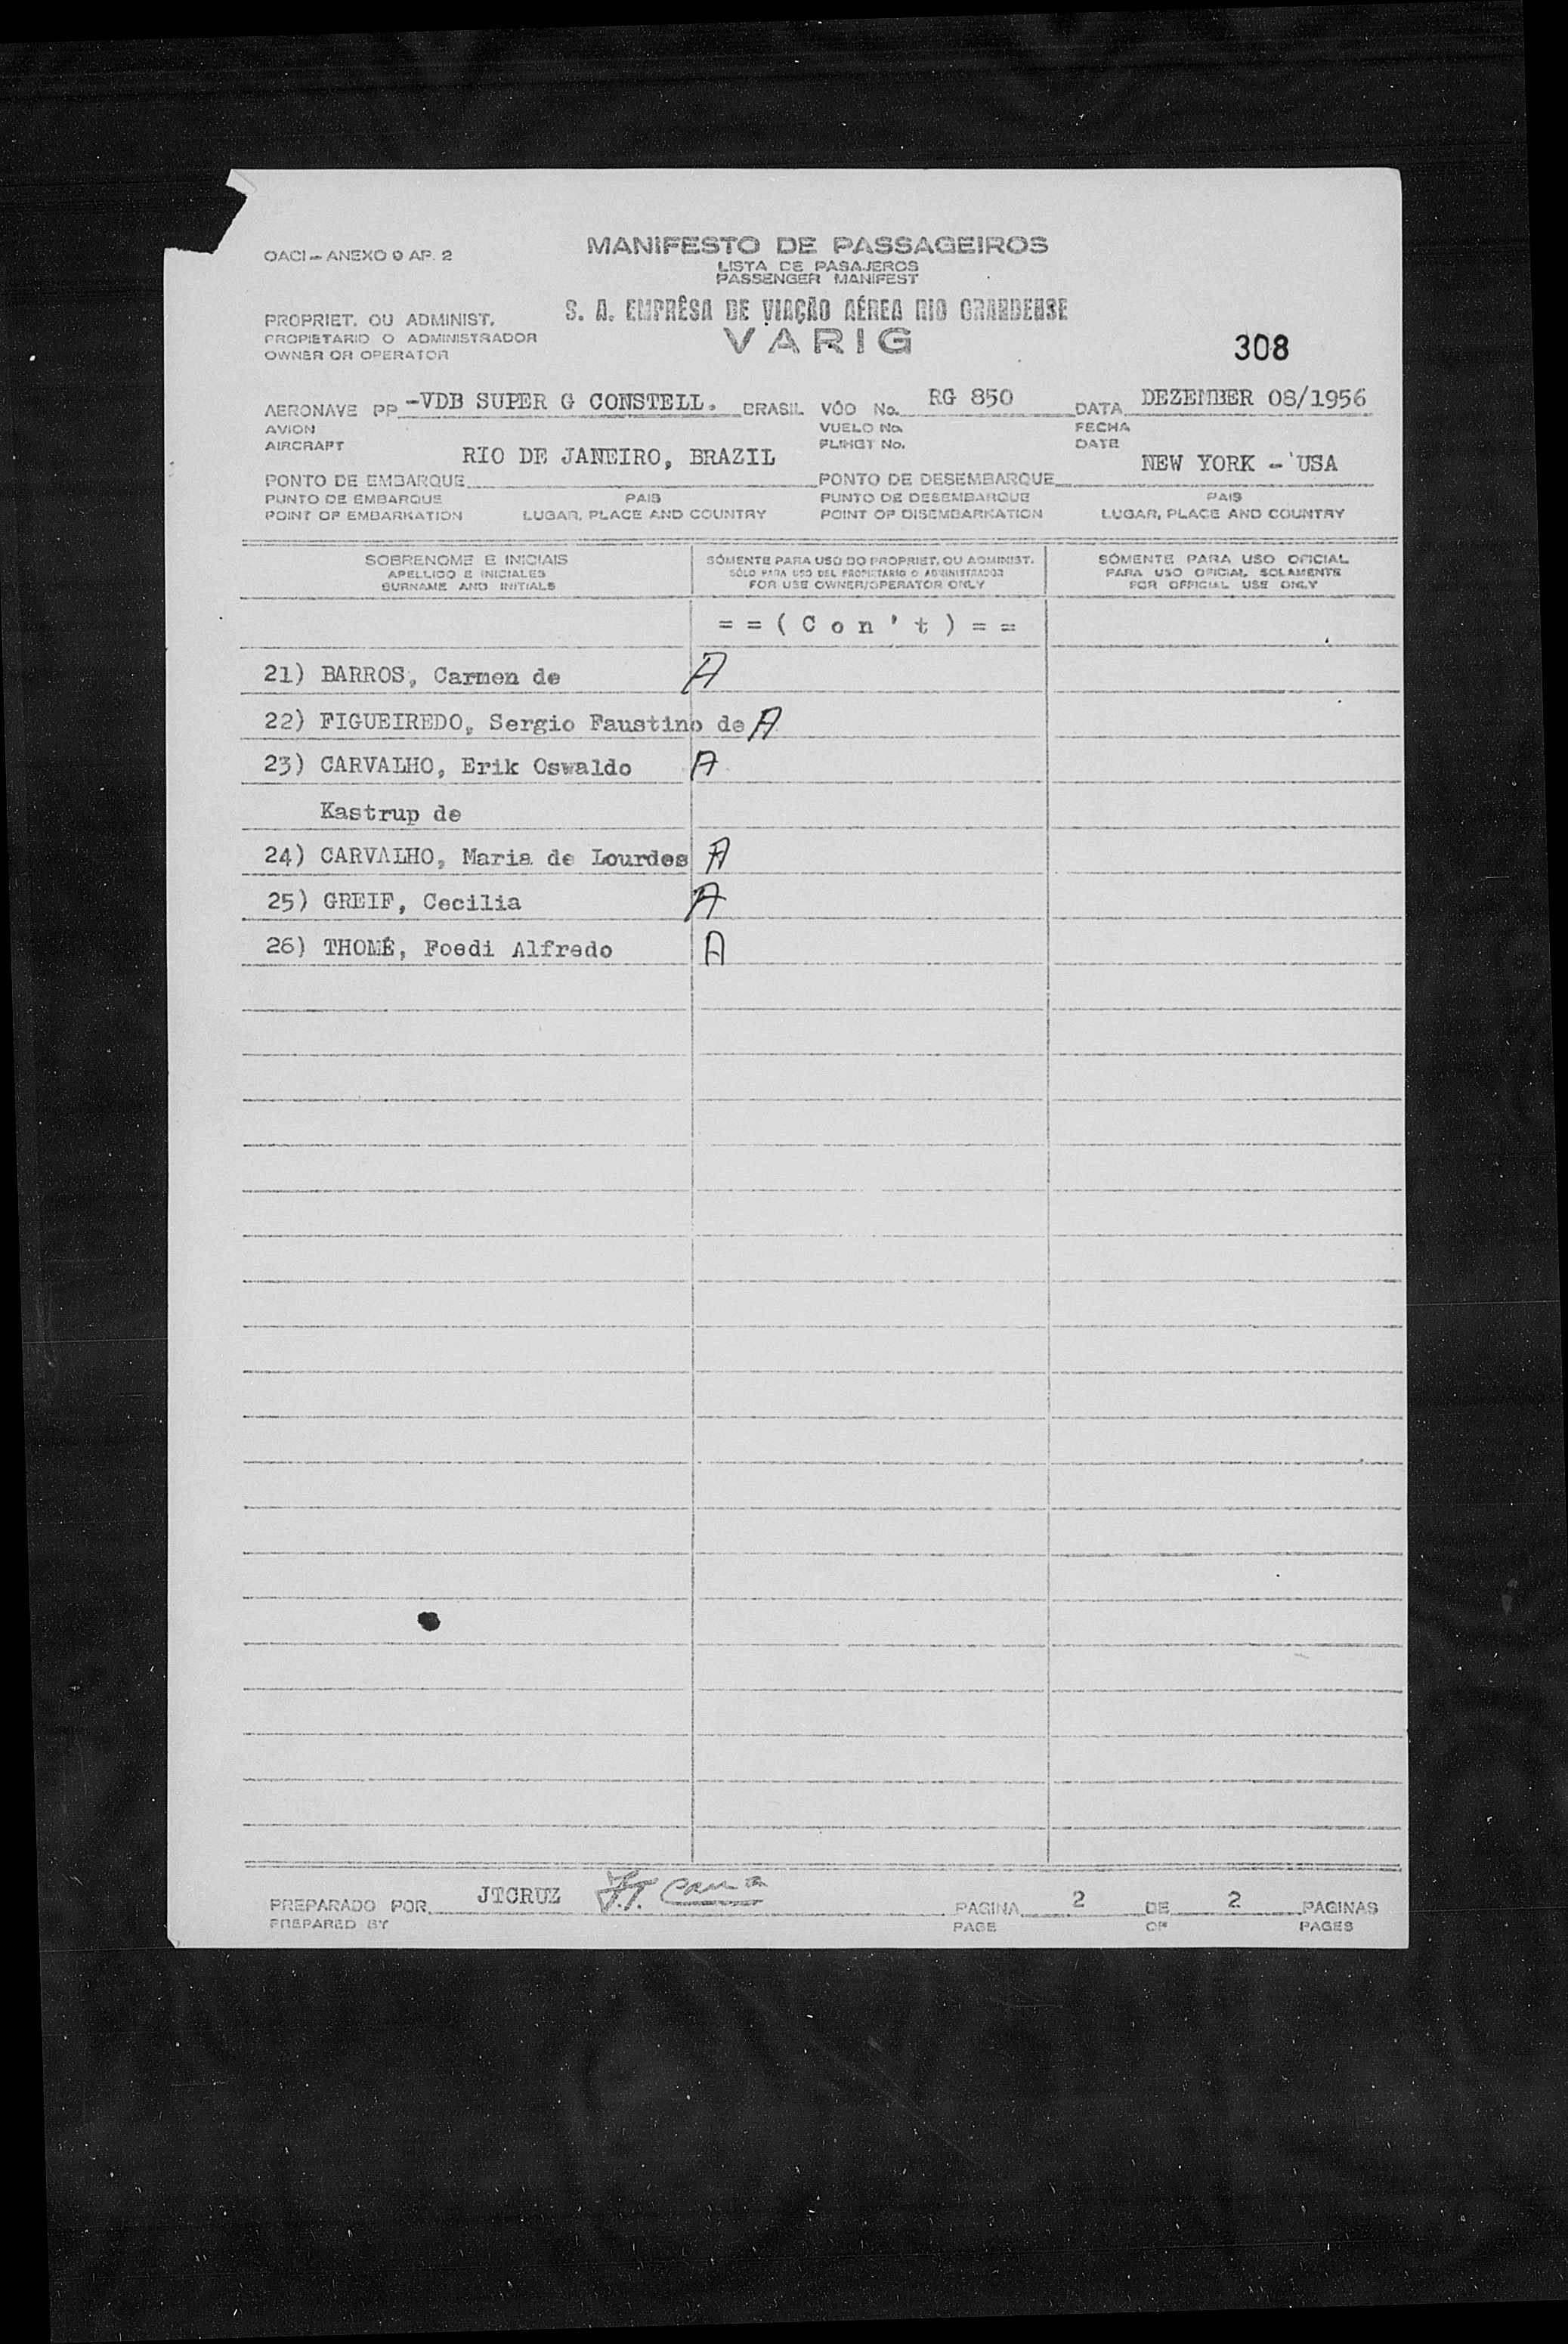 OACI — ANEXO 9 AP. 2
MANIFESTO DE PASSAGEIROS
LISTA DE PASAJEROS
PASSENGER MANIFEST
PROPRIET. OU ADMINIST.
PROPIETARIO O ADMINISTRADOR
OWNER OR OPERATOR
S. A. EMPRÊSA DE VIAÇÃO AÉREA RIO GRANDENSE
VARIG
308
AERONAVE PP -VDB SUPER G CONSTELL. BRASIL VÔO No. RG 850 DATA DEZEMBER 08/1956
AVION VUELO No. FECHA
AIRCRAFT FLIHGT No. DATE
PONTO DE EMBARQUE RIO DE JANEIRO, BRAZIL PONTO DE DESEMBARQUE NEW YORK - USA
PUNTO DE EMBARQUE PAIS PUNTO DE DESEMBARQUE PAIS
POINT OF EMBARKATION LUGAR, PLACE AND COUNTRY POINT OF DISEMBARKATION LUGAR, PLACE AND COUNTRY
SOBRENOME E INICIAIS
APELLIDO E INICIALES
SURNAME AND INITIALS
SÓMENTE PARA USO DO PROPRIET. OU ADMINIST.
SÓLO PARA USO DEL PROPIETARIO O ADMINISTRADOR
FOR USE OWNER/OPERATOR ONLY
SÓMENTE PARA USO OFICIAL
PARA USO OFICIAL SOLAMENTE
FOR OFFICIAL USE ONLY
= = ( C o n ' t ) = =
21) BARROS, Carmen de A
22) FIGUEIREDO, Sergio Faustino de A
23) CARVALHO, Erik Oswaldo A
Kastrup de
24) CARVALHO, Maria de Lourdes A
25) GREIF, Cecilia A
26) THOMÉ, Foedi Alfredo A
PREPARADO POR JTCRUZ PAGINA 2 DE 2 PAGINAS
PREPARED BY PAGE OF PAGES